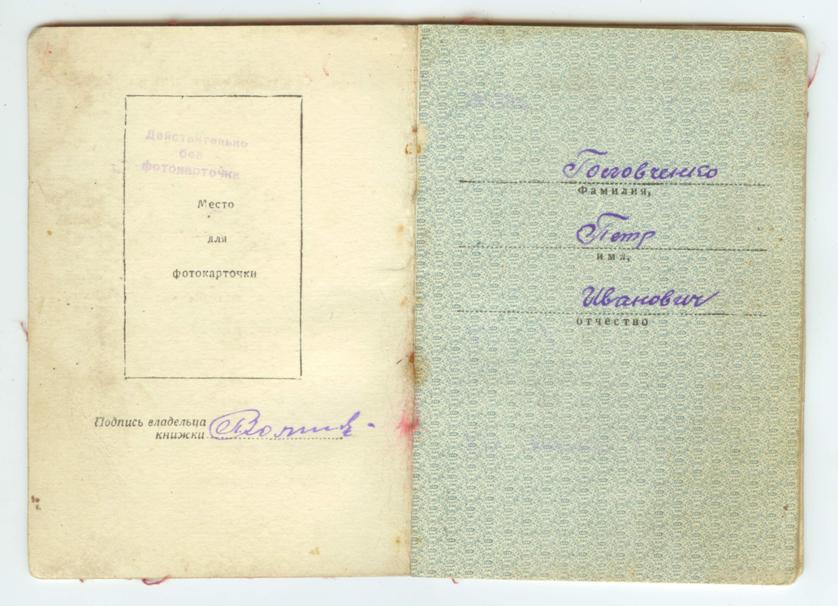 Действительно
без
фотокарточки
Место
для
фотокарточки
Подпись владельца
книжки
Головченко
Фамилия,
Петр
имя,
Иванович
отчество